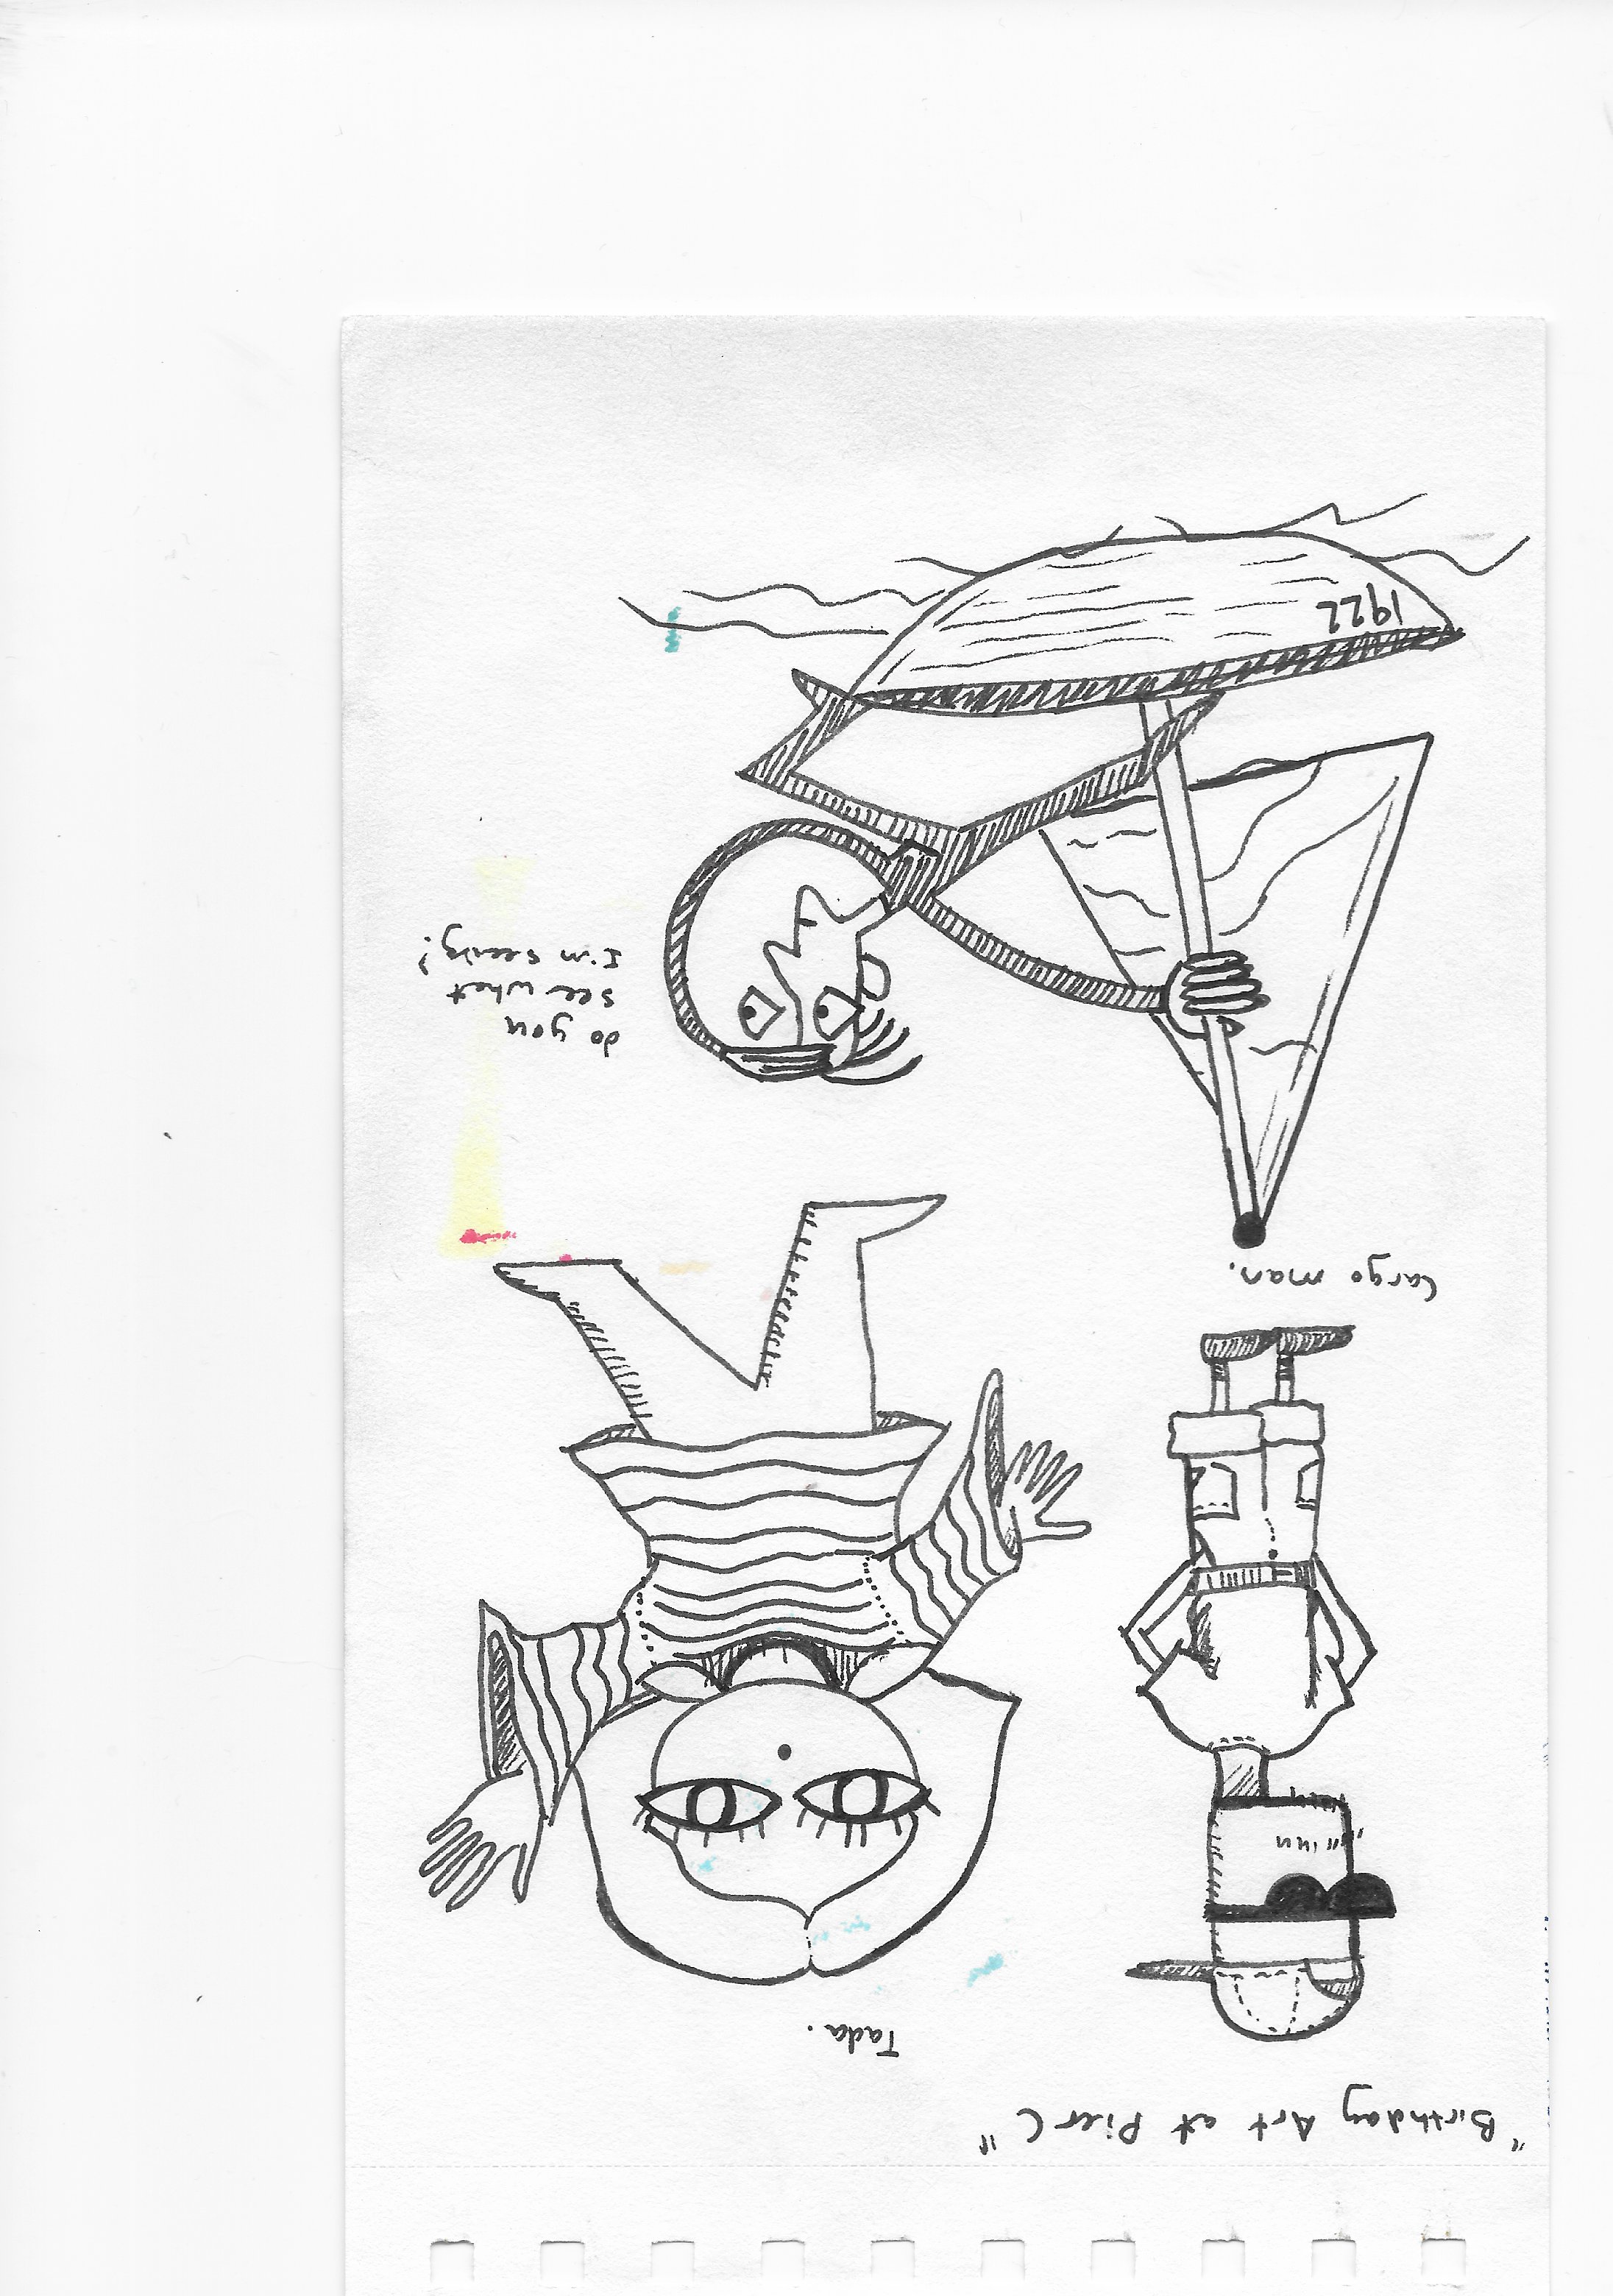 "Birthday Art at Pier C"
Tada.
Cargo man.
do you
see what
I'm seeing?
1922